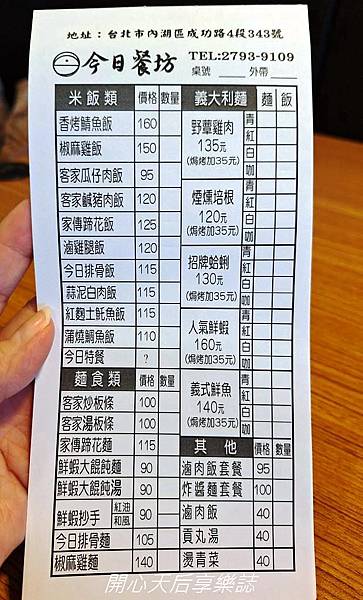 地址：台北市內湖區成功路4段343號
今日餐坊
TEL:2793-9109
桌號 外帶
米飯類 價格 數量
香烤鯖魚飯 160
椒麻雞飯 150
客家瓜仔肉飯 95
客家鹹豬肉飯 120
家傳蹄花飯 125
滷雞腿飯 120
今日排骨飯 115
蒜泥白肉飯 115
紅麴土魠魚飯 115
蒲燒鯛魚飯 110
今日特餐 ?
麵食類 價格 數量
客家炒板條 100
客家湯板條 100
家傳蹄花麵 115
鮮蝦大餛飩麵 90
鮮蝦大餛飩湯 90
鮮蝦抄手 紅油 和風 90
今日排骨麵 105
椒麻雞麵 140
義大利麵 麵 飯
野蕈雞肉 135元 (焗烤加35元) 青 紅 白 咖
煙燻培根 120元 (焗烤加35元) 青 紅 白 咖
招牌蛤蜊 130元 (焗烤加35元) 青 紅 白 咖
人氣鮮蝦 160元 (焗烤加35元) 青 紅 白 咖
義式鮮魚 140元 (焗烤加35元) 青 紅 白 咖
其他 價格 數量
滷肉飯套餐 95
炸醬麵套餐 100
滷肉飯 40
貢丸湯 40
燙青菜 40
開心大后享樂誌